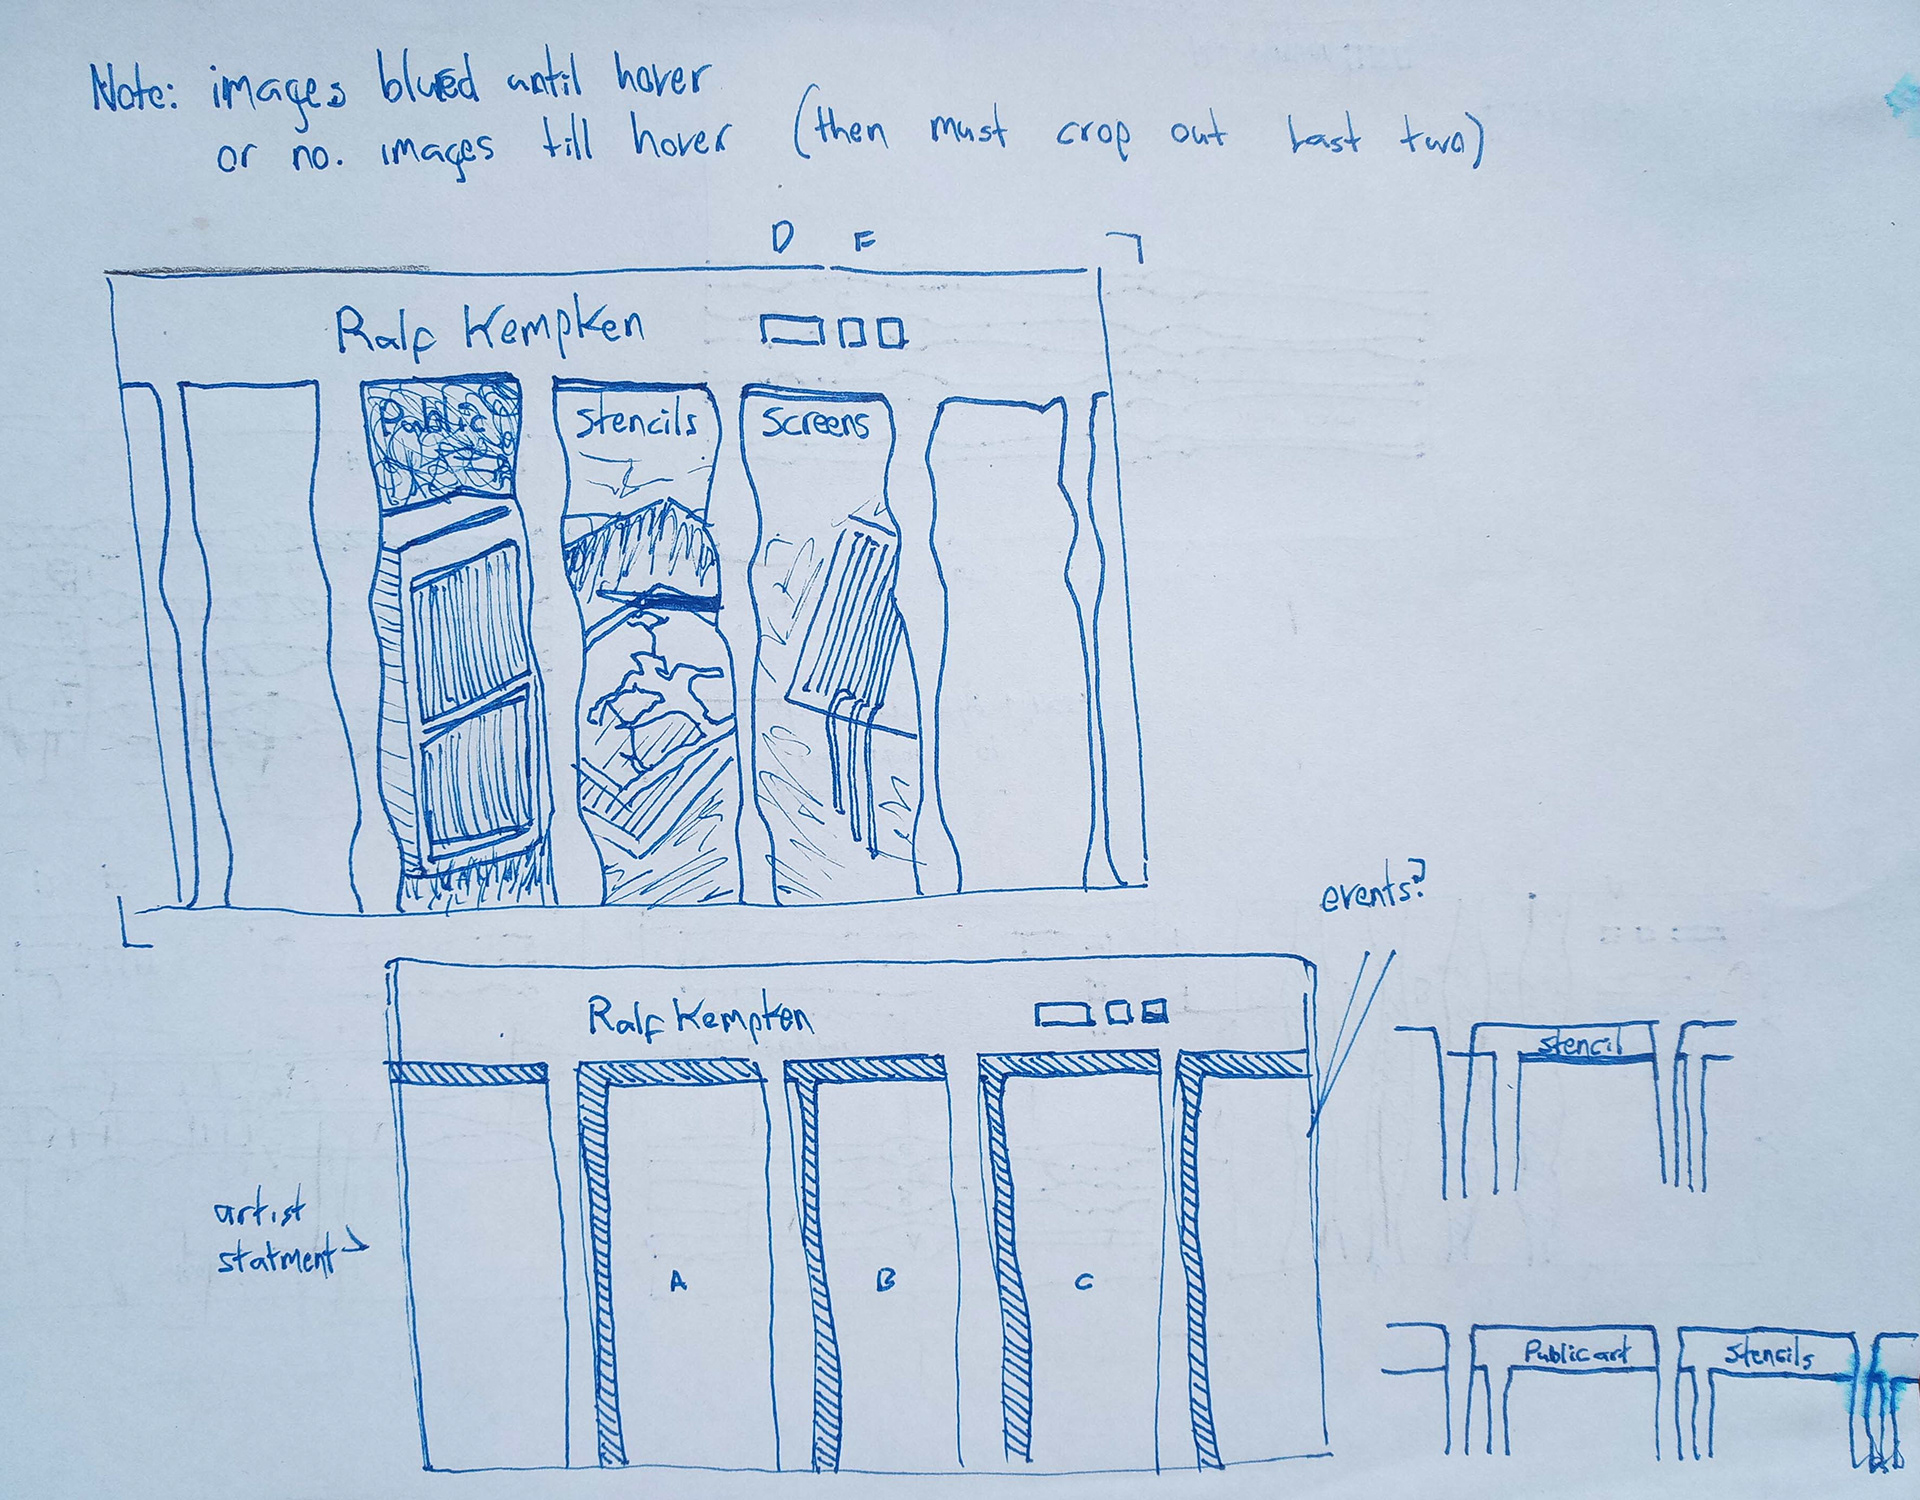 Note: images blured until hover
or no. images till hover (then must crop out last two)
D F
Ralf Kempken
Public
Stencils
Screens
events?
Ralf Kempken
artist
statment
A
B
C
stencil
Public art
Stencils